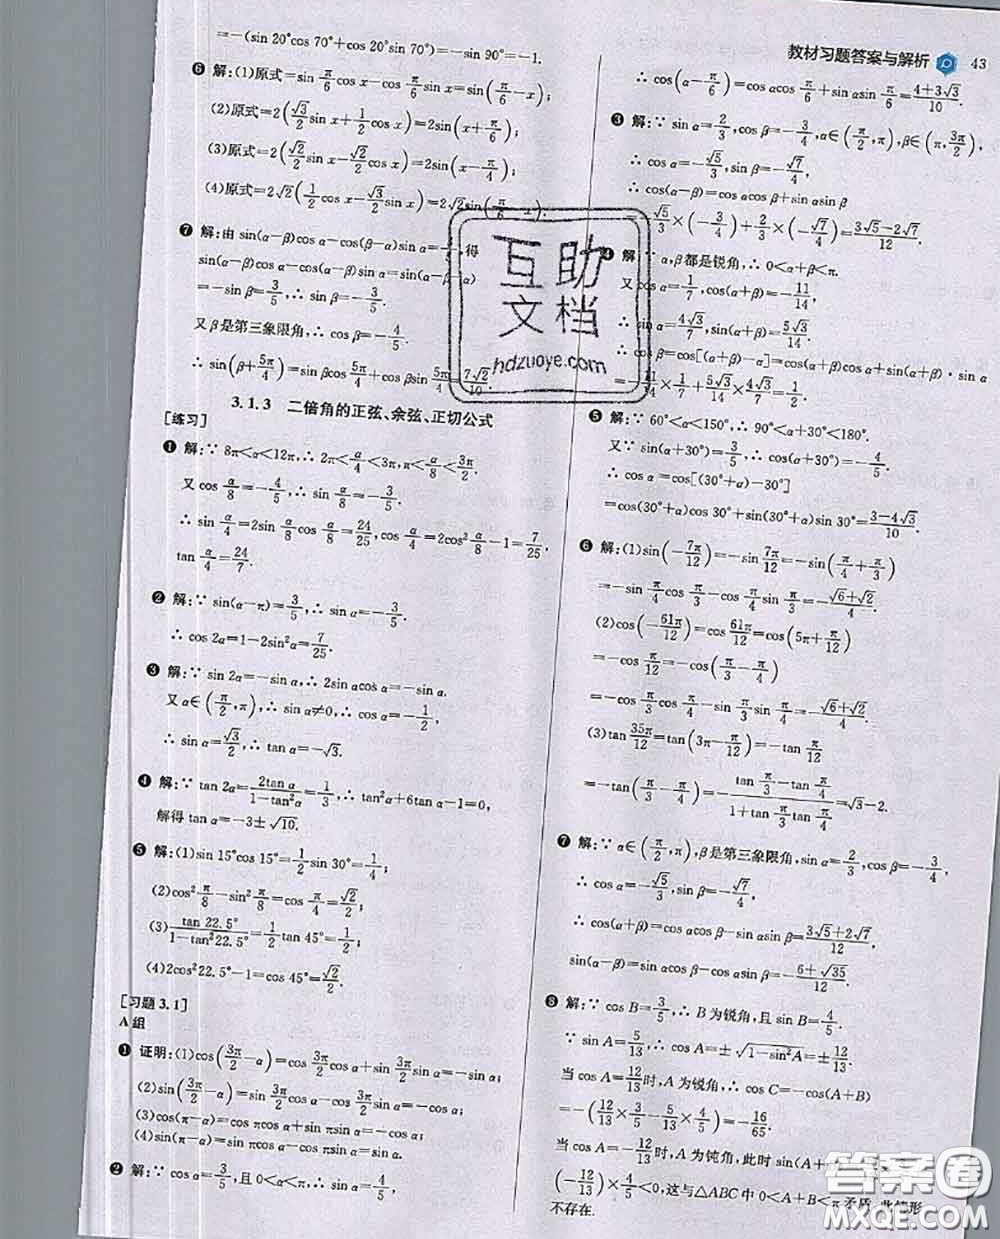 教材习题答案与解析 43
=-(sin 20°cos 70°+cos 20°sin 70°)=-sin 90°=-1.
❻ 解:(1)原式=sin π/6 cos x-cos π/6 sin x=sin(π/6-x);
(2)原式=2(√3/2 sin x+1/2 cos x)=2sin(x+π/6);
(3)原式=2(√2/2 sin x-√2/2 cos x)=2sin(x-π/4);
(4)原式=2√2(1/2 cos x-√3/2 sin x)=2√2sin(π/6-x).
❼ 解:由 sin(α-β)cos α-cos(β-α)sin α= 得
sin(α-β)cos α-cos(α-β)sin α=sin(α-β-α)
=-sin β=3/5,∴ sin β=-3/5.
又 β 是第三象限角,∴ cos β=-4/5.
∴ sin(β+5π/4)=sin βcos 5π/4+cos βsin 5π/4=7√2/10.
3.1.3 二倍角的正弦、余弦、正切公式
[练习]
❶ 解:∵ 8π<α<12π,∴ 2π<α/4<3π,π<α/8<3π/2.
又 cos α/8=-4/5,∴ sin α/8=-3/5.
∴ sin α/4=2sin α/8 cos α/8=24/25,cos α/4=2cos² α/8-1=7/25,
tan α/4=24/7.
❷ 解:∵ sin(α-π)=3/5,∴ sin α=-3/5.
∴ cos 2α=1-2sin²α=7/25.
❸ 解:∵ sin 2α=-sin α,∴ 2sin αcos α=-sin α.
又 α∈(π/2,π),∴ sin α≠0,∴ cos α=-1/2,
∴ sin α=√3/2,∴ tan α=-√3.
❹ 解:∵ tan 2α=2tan α/(1-tan²α)=1/3,∴ tan²α+6tan α-1=0,
解得 tan α=-3±√10.
❺ 解:(1)sin 15°cos 15°=1/2 sin 30°=1/4;
(2)cos² π/8-sin² π/8=cos π/4=√2/2;
(3)tan 22.5°/(1-tan²22.5°)=1/2 tan 45°=1/2;
(4)2cos²22.5°-1=cos 45°=√2/2.
[习题 3.1]
A 组
❶ 证明:(1)cos(3π/2-α)=cos 3π/2 cos α+sin 3π/2 sin α=-sin α;
(2)sin(3π/2-α)=sin 3π/2 cos α-cos 3π/2 sin α=-cos α;
(3)cos(π-α)=cos πcos α+sin πsin α=-cos α;
(4)sin(π-α)=sin πcos α-cos πsin α=sin α.
❷ 解:∵ cos α=3/5,且 0<α<π,∴ sin α=4/5,
∴ cos(α-π/6)=cos αcos π/6+sin αsin π/6=(4+3√3)/10.
❸ 解:∵ sin α=2/3,cos β=-3/4,α∈(π/2,π),β∈(π,3π/2),
∴ cos α=-√5/3,sin β=-√7/4,
∴ cos(α-β)=cos αcos β+sin αsin β
=-√5/3×(-3/4)+2/3×(-√7/4)=(3√5-2√7)/12.
❹ 解:∵ α,β都是锐角,∴ 0<α+β<π.
又 cos α=1/7,cos(α+β)=-11/14,
∴ sin α=4√3/7,sin(α+β)=5√3/14.
∴ cos β=cos[(α+β)-α]=cos(α+β)cos α+sin(α+β)·sin α
=-11/14×1/7+5√3/14×4√3/7=1/2.
❺ 解:∵ 60°<α<150°,∴ 90°<α+30°<180°.
又∵ sin(α+30°)=3/5,∴ cos(α+30°)=-4/5.
∴ cos α=cos[(30°+α)-30°]
=cos(30°+α)cos 30°+sin(30°+α)sin 30°=(3-4√3)/10.
❻ 解:(1)sin(-7π/12)=-sin 7π/12=-sin(π/4+π/3)
=-sin π/4 cos π/3-cos π/4 sin π/3=-(√6+√2)/4.
(2)cos(-61π/12)=cos 61π/12=cos(5π+π/12)
=-cos π/12=-cos(π/3-π/4)
=-cos π/3 cos π/4-sin π/3 sin π/4=-(√6+√2)/4.
(3)tan 35π/12=tan(3π-π/12)=-tan π/12
=-tan(π/3-π/4)=-(tan π/3-tan π/4)/(1+tan π/3 tan π/4)=√3-2.
❼ 解:∵ α∈(π/2,π),β是第三象限角,sin α=2/3,cos β=-3/4,
∴ cos α=-√5/3,sin β=-√7/4,
∴ cos(α+β)=cos αcos β-sin αsin β=(3√5+2√7)/12,
sin(α-β)=sin αcos β-cos αsin β=-(6+√35)/12.
❽ 解:∵ cos B=3/5,∴ B 为锐角,且 sin B=4/5.
∵ sin A=5/13,∴ cos A=±√(1-sin²A)=±12/13.
当 cos A=12/13时,A 为锐角,∴ cos C=-cos(A+B)
=-(12/13×3/5-5/13×4/5)=-16/65.
当 cos A=-12/13时,A 为钝角,此时 sin(A+
(-12/13)×4/5<0,这与△ABC 中 0<A+B<π 矛盾,此情形
不存在.
互助
文档
hdzuoye.com
答案圈
MXQE.COM